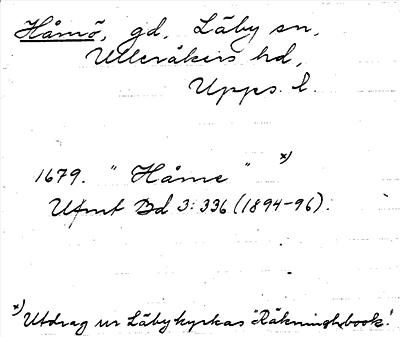 Håmö, gd, Läby sn,
Ulleråkers hd,
Upps. l.
1679. "Håme" x)
Ufmt Bd 3: 336 (1894-96).
x) Utdrag ur Läby kyrkas "Räkninghzbook!